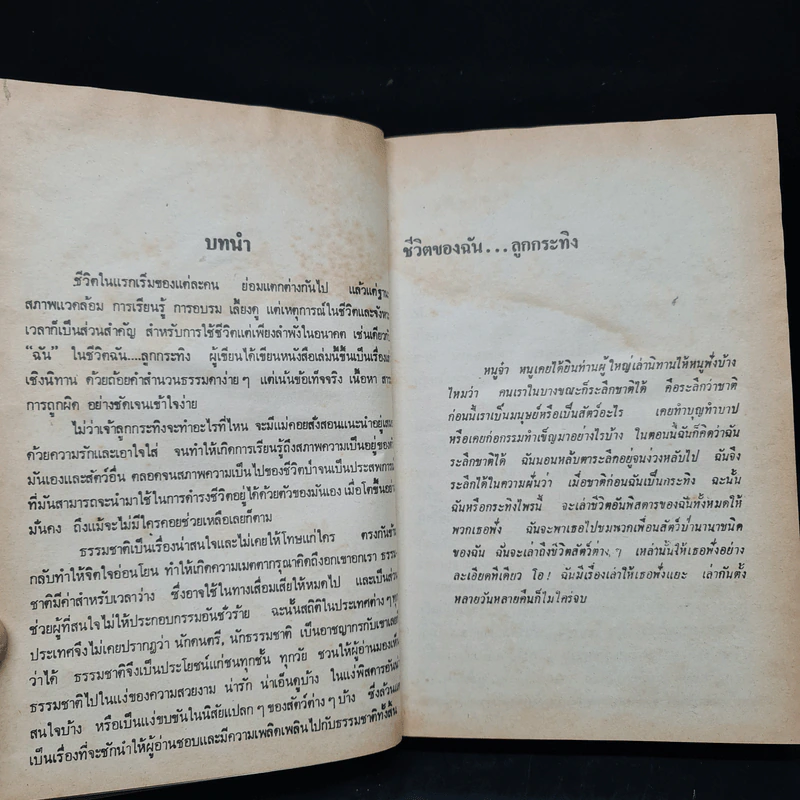 บทนำ
ชีวิตในแรกเริ่มของแต่ละคน ย่อมแตกต่างกันไป แล้วแต่ฐานะ
สภาพแวดล้อม การเรียนรู้ การอบรม เลี้ยงดู แต่เหตุการณ์ในชีวิตและจังหวะ
เวลาก็เป็นส่วนสำคัญ สำหรับการใช้ชีวิตแต่เพียงลำพังในอนาคต เช่นเดียวกับ
“ฉัน” ในชีวิตฉัน....ลูกกระทิง ผู้เขียนได้เขียนหนังสือเล่มนี้ขึ้นเป็นเรื่อง
เชิงนิทาน ด้วยถ้อยคำสำนวนธรรมดาง่าย ๆ แต่เน้นข้อเท็จจริง เนื้อหา สาระ
การถูกผิด อย่างชัดเจนเข้าใจง่าย
ไม่ว่าเจ้าลูกกระทิงจะทำอะไรที่ไหน จะมีแม่คอยสั่งสอนแนะนำอยู่เสมอ
ด้วยความรักและเอาใจใส่ จนทำให้เกิดการเรียนรู้ถึงสภาพความเป็นอยู่ของตัว
มันเองและสัตว์อื่น ตลอดจนสภาพความเป็นไปของชีวิตป่าจนเป็นประสพการณ์
ที่มันสามารถจะนำมาใช้ในการดำรงชีวิตอยู่ได้ด้วยตัวของมันเอง เมื่อโตขึ้นอย่าง
มั่นคง ถึงแม้จะไม่มีใครคอยช่วยเหลือเลยก็ตาม
ธรรมชาติเป็นเรื่องน่าสนใจและไม่เคยให้โทษแก่ใคร ตรงกันข้าม
กลับทำให้จิตใจอ่อนโยน ทำให้เกิดความเมตตากรุณาคิดถึงอกเขาอกเรา ธรรม
ชาติมีค่าสำหรับเวลาว่าง ซึ่งอาจใช้ในทางเสื่อมเสียให้หมดไป และเป็นส่วน
ช่วยผู้ที่สนใจไม่ให้ประกอบกรรมอันชั่วร้าย ฉะนั้นสถิติในประเทศต่าง ๆ ทุก
ประเทศจึงไม่เคยปรากฏว่า นักดนตรี, นักธรรมชาติ เป็นอาชญากรกับเขาเลย
ว่าได้ ธรรมชาติจึงเป็นประโยชน์แก่ชนทุกชั้น ทุกวัย ชวนให้ผู้อ่านมองเห็น
ธรรมชาติไปในแง่ของความสวยงาม น่ารัก น่าเอ็นดูบ้าง ในแง่พิสดารอันน่า
สนใจบ้าง หรือเป็นแง่ขบขันในนิสัยแปลก ๆ ของสัตว์ต่าง ๆ บ้าง ซึ่งล้วนแต่
เป็นเรื่องที่จะชักนำให้ผู้อ่านชอบและมีความเพลิดเพลินไปกับธรรมชาติทั้งสิ้น
ชีวิตของฉัน...ลูกกระทิง
หนูจ๋า หนูเคยได้ยินท่านผู้ใหญ่เล่านิทานให้หนูฟังบ้าง
ไหมว่า คนเราในบางขณะก็ระลึกชาติได้ คือระลึกว่าชาติ
ก่อนนี้เราเป็นมนุษย์หรือเป็นสัตว์อะไร เคยทำบุญทำบาป
หรือเคยก่อกรรมทำเข็ญมาอย่างไรบ้าง ในตอนนี้ฉันก็คิดว่าฉัน
ระลึกชาติได้ ฉันนอนหลับตาระลึกอยู่จนง่วงหลับไป ฉันจึง
ระลึกได้ในความฝันว่า เมื่อชาติก่อนฉันเป็นกระทิง ฉะนั้น
ฉันหรือกระทิงไพรนี้ จะเล่าชีวิตอันพิสดารของฉันทั้งหมดให้
พวกเธอฟัง ฉันจะพาเธอไปชมพวกเพื่อนสัตว์ป่านานาชนิด
ของฉัน ฉันจะเล่าถึงชีวิตสัตว์ต่าง ๆ เหล่านั้นให้เธอฟังอย่าง
ละเอียดทีเดียว โอ! ฉันมีเรื่องเล่าให้เธอฟังแยะ เล่ากันตั้ง
หลายวันหลายคืนก็ไม่ใคร่จบ